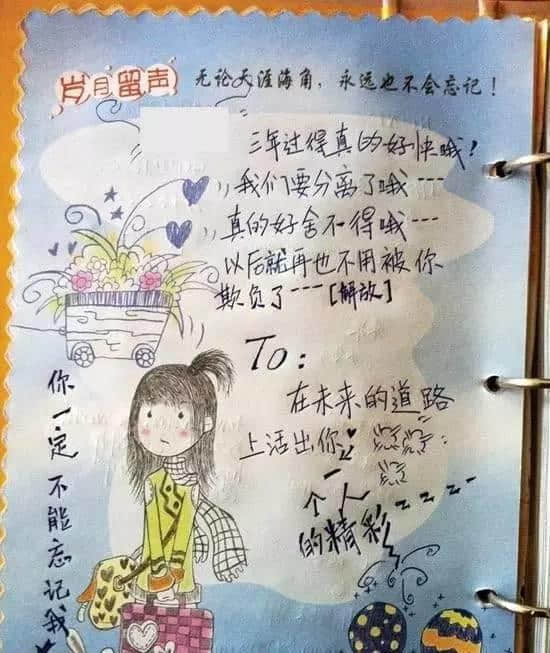 岁月留声 无论天涯海角，永远也不会忘记！
三年过得真的好快哦！
我们要分离了哦---
真的好舍不得哦---
以后就再也不用被你
欺负了---[解放]
To：
在未来的道路
上活出你
一
个人
的精彩
你一定不能忘记我